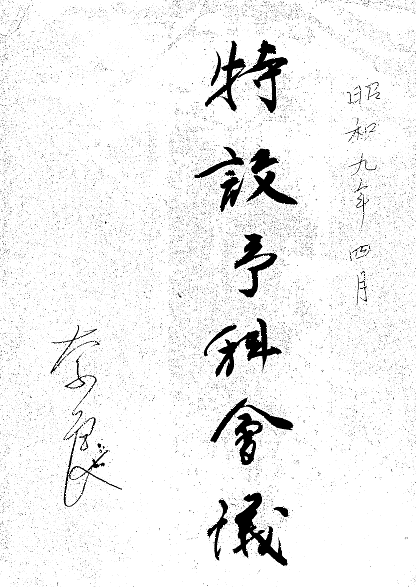 昭和九年四月
特設予科會議
奈良